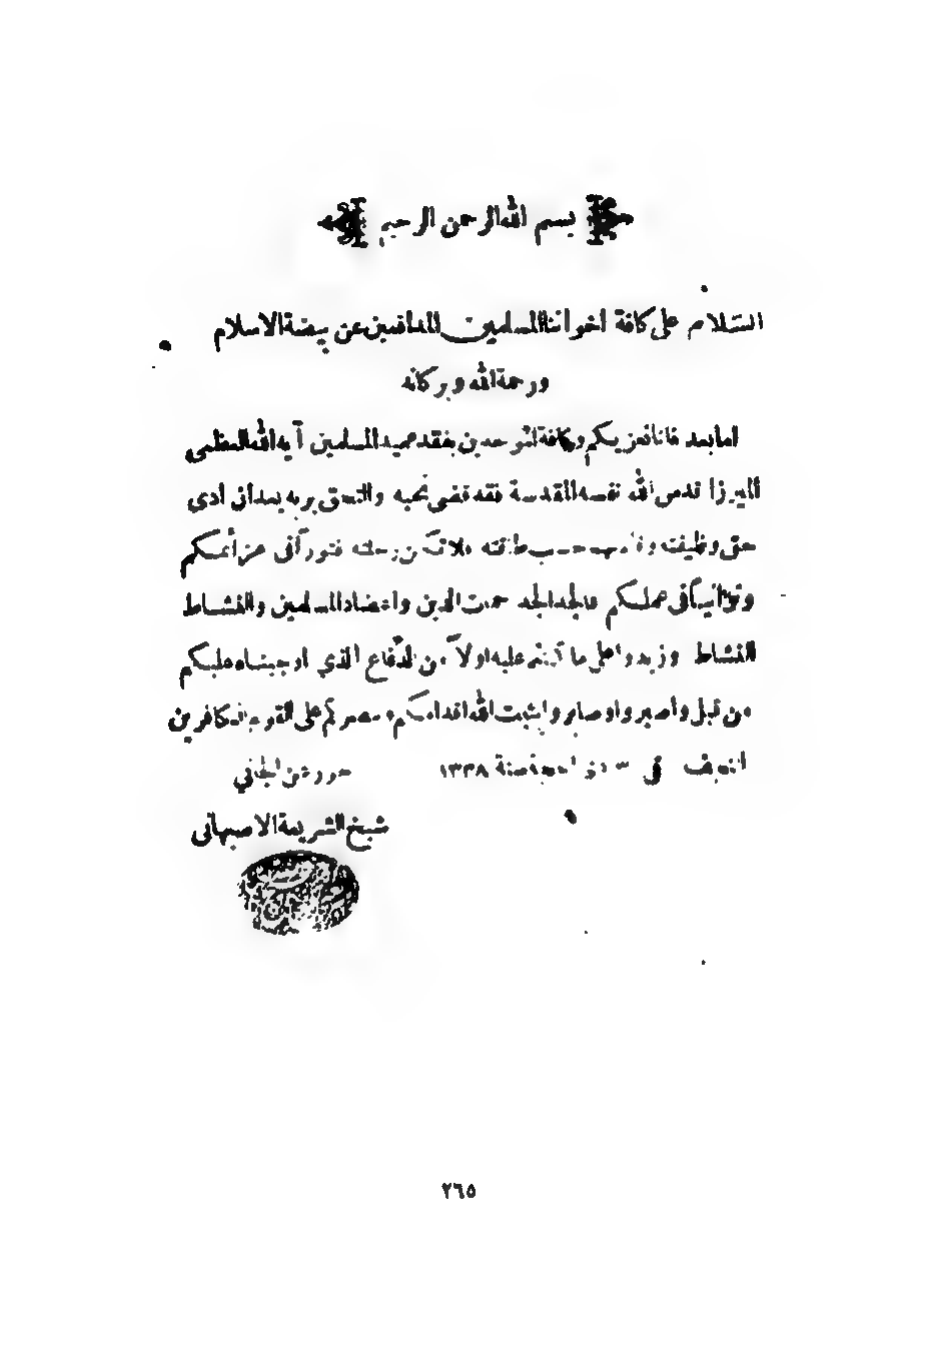 بسم الله الرحمن الرحيم
السلام على كافة اخواننا المسلمين المدافعين عن بيضة الاسلام
ورحمة الله وبركاته
اما بعد فانا نعزيكم وكافة الموحدين بفقد عميد المسلمين آية الله العظمى
الميرزا قدس الله نفسه المقدسة فقد قضى نحبه والتحق بربه بعد ان ادى
حق وظيفته حسب طاقته فلا تكن رحلته فتوراً في عزائمكم
وتوانياً في عملكم فالجد الجد حماة الدين واعضاد المسلمين والنشاط
النشاط وزيدوا على ما كنتم عليه اولاً من الدفاع الذي اوجبناه عليكم
من قبل وأصبروا وصابروا يثبت الله اقدامكم على القوم الكافرين
النجف في ذو الحجة سنة ١٣٣٨ الجاني
شيخ الشريعة الاصبهاني
٢٦٥